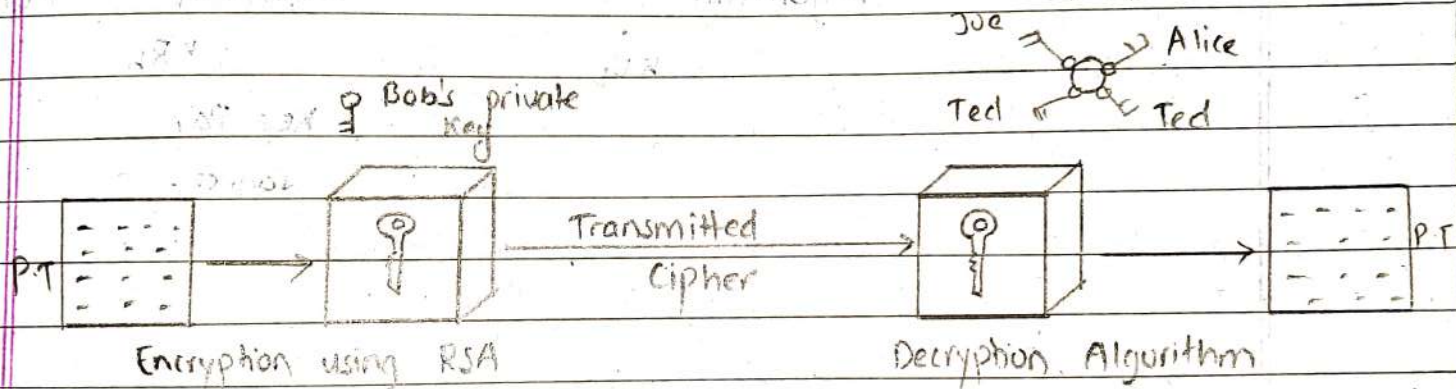 Joe
Alice
Bob's private
Key
Ted
Ted
Transmitted
P.T
P.T
Cipher
Encryption using RSA
Decryption Algorithm